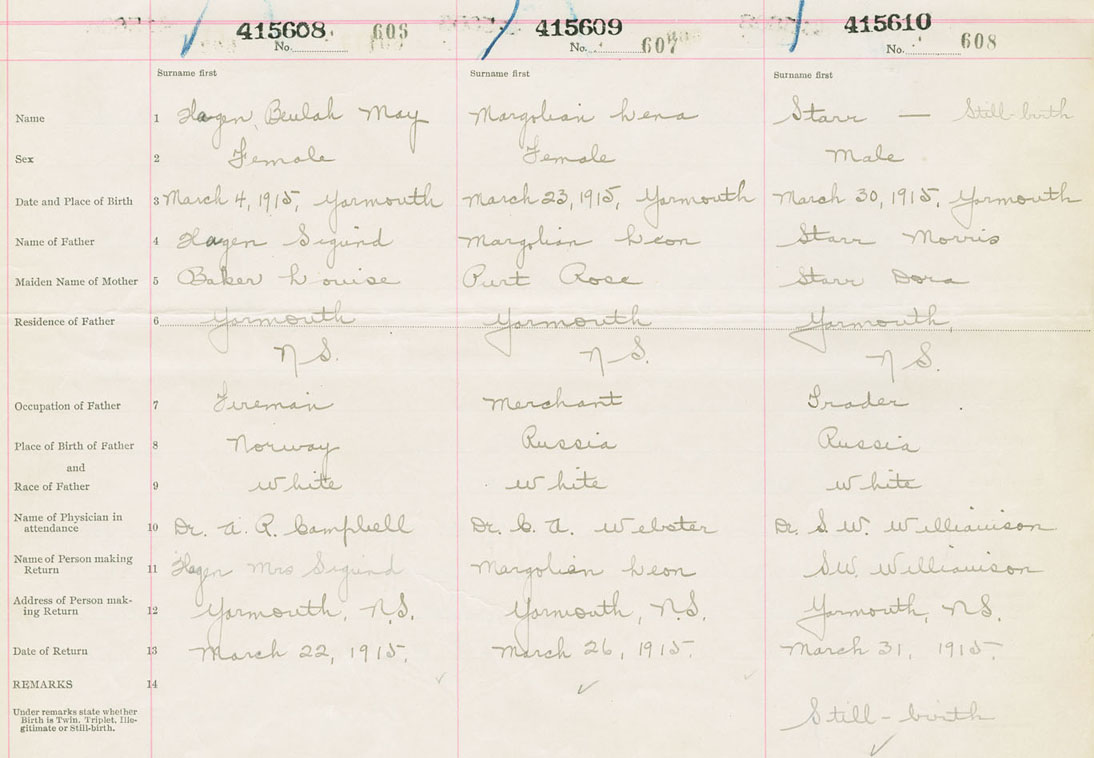 415608 606 415609 607 415610 608
No. No. No.
Surname first Surname first Surname first
Name 1 Hagen, Beulah May Margolian Lena Starr — Still-birth
Sex 2 Female Female Male
Date and Place of Birth 3 March 4, 1915, Yarmouth March 23, 1915, Yarmouth March 30, 1915, Yarmouth
Name of Father 4 Hagen Sigurd Margolian Leon Starr Morris
Maiden Name of Mother 5 Baker Louise Purt Rose Starr Dora
Residence of Father 6 Yarmouth Yarmouth Yarmouth,
N S. N S. N S.
Occupation of Father 7 Fireman Merchant Trader
Place of Birth of Father 8 Norway Russia Russia
and
Race of Father 9 White White White
Name of Physician in
attendance 10 Dr. A. R. Campbell Dr. C. A. Webster Dr. S. W. Williamson
Name of Person making
Return 11 Hagen Mrs Sigurd Margolian Leon S.W. Williamson
Address of Person mak-
ing Return 12 Yarmouth, N.S. Yarmouth, N.S. Yarmouth, N.S.
Date of Return 13 March 22, 1915. March 26, 1915. March 31, 1915.
REMARKS 14
Under remarks state whether
Birth is Twin, Triplet, Ille-
gitimate or Still-birth.
Still-birth